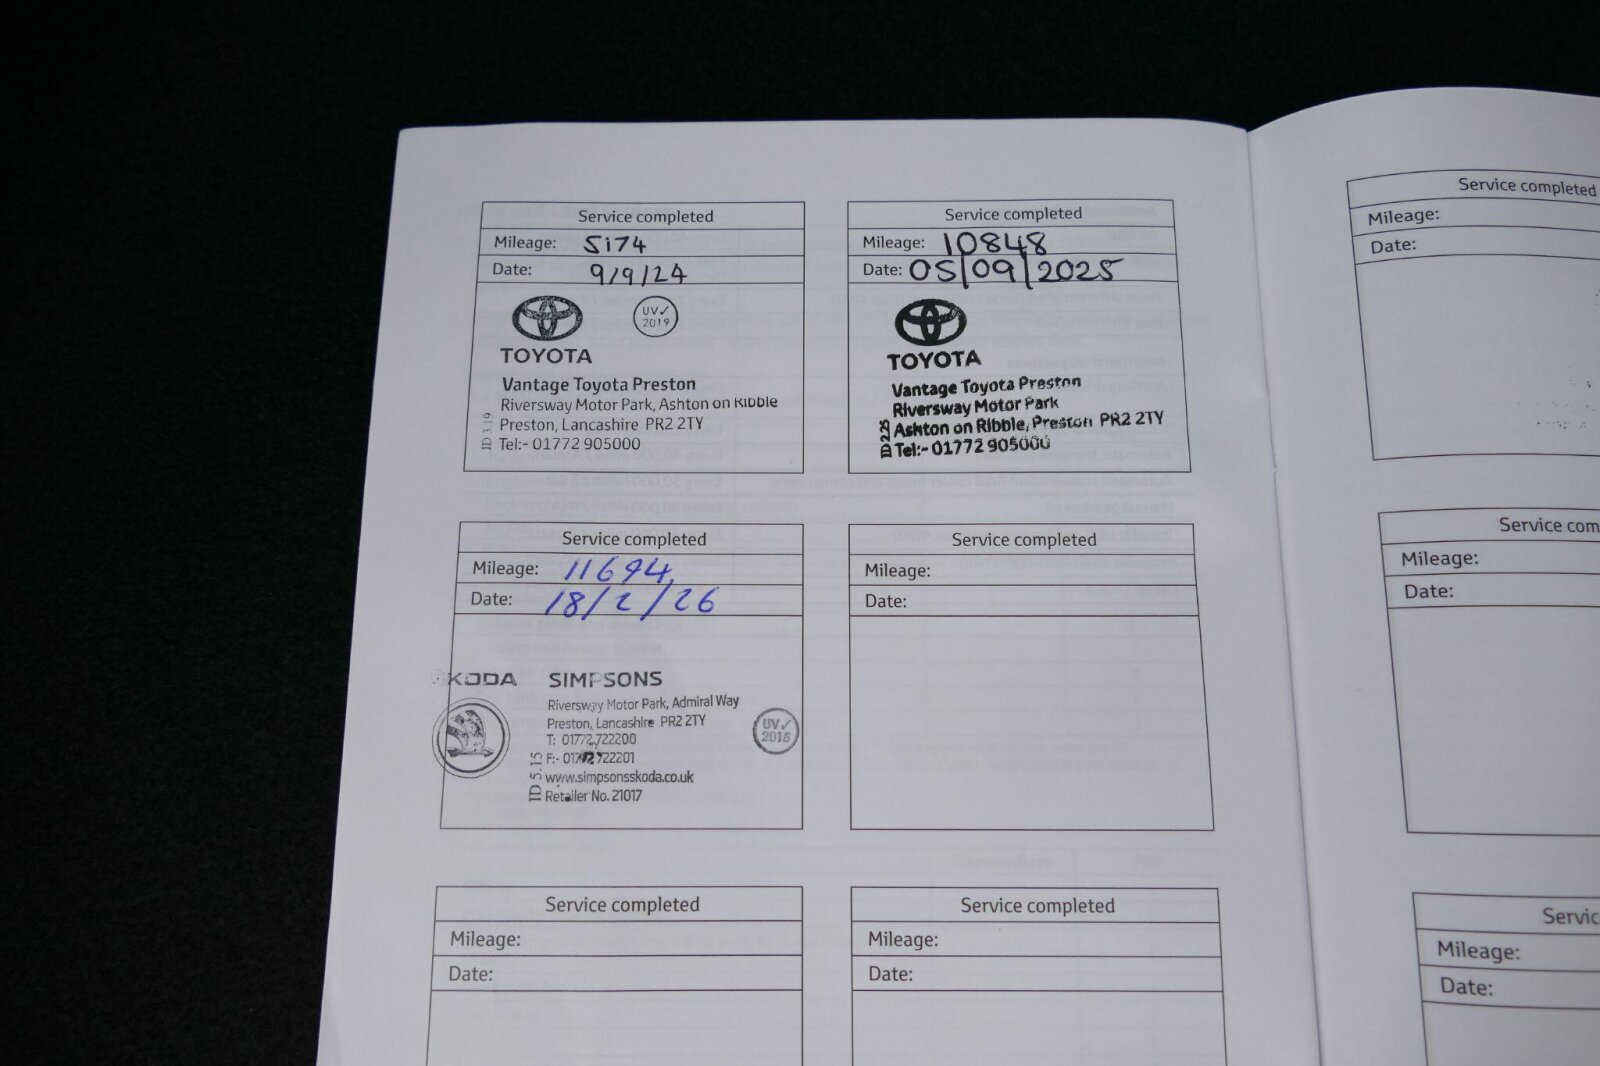 Service completed
Mileage: 5174
Date: 9/9/24
UV✓
2019
TOYOTA
Vantage Toyota Preston
Riversway Motor Park, Ashton on Ribble
Preston, Lancashire PR2 2TY
Tel:- 01772 905000
ID 3.19
Service completed
Mileage: 10848
Date: 05/09/2025
TOYOTA
Vantage Toyota Preston
Riversway Motor Park
Ashton on Ribble, Preston PR2 2TY
Tel:- 01772 905000
Service completed
Mileage:
Date:
Service completed
Mileage: 11694
Date: 18/2/26
SKODA SIMPSONS
Riversway Motor Park, Admiral Way
Preston, Lancashire PR2 2TY
T: 01772 722200
F:- 01772 722201
www.simpsonsskoda.co.uk
Retailer No. 21017
ID 5.15
UV✓
2015
Service completed
Mileage:
Date:
Service com
Mileage:
Date:
Service completed
Mileage:
Date:
Service completed
Mileage:
Date:
Servic
Mileage:
Date: